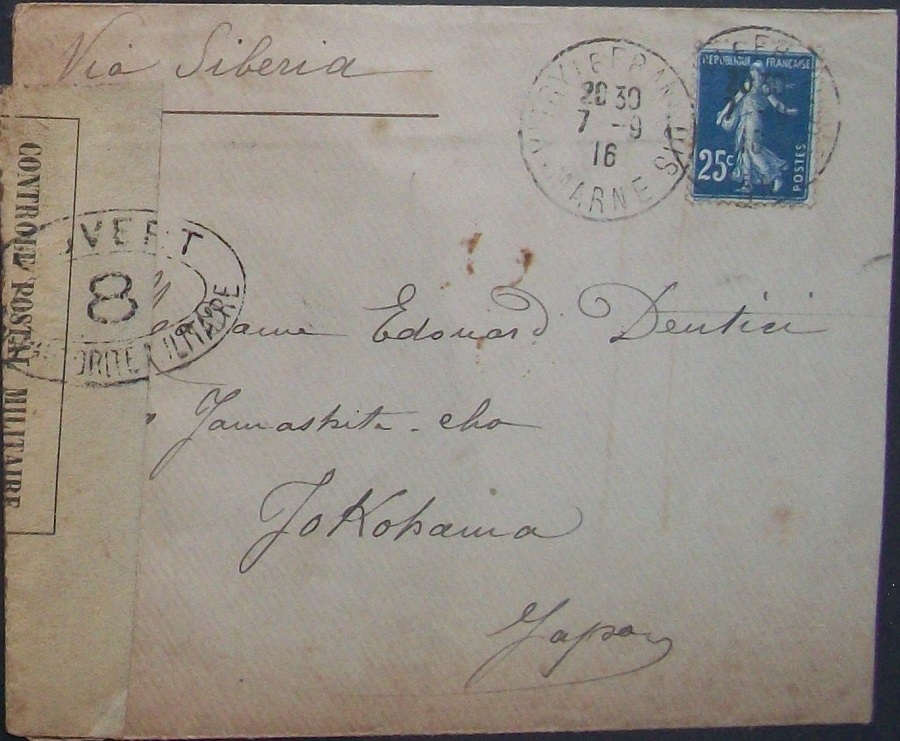 Via Siberia
VITRY LE F
20 30
7 - 9
16
MARNE
REPUBLIQUE FRANÇAISE
25c
POSTES
CONTROLE POSTAL MILITAIRE
OUVERT
8
AUTORITÉ MILITAIRE
Edouard Dentici
Yamashita-cho
Yokohama
Japon